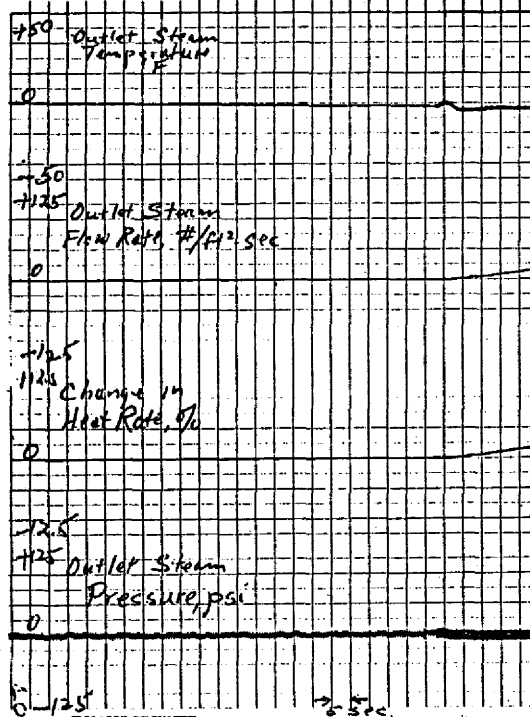 +50 Outlet Steam
Temperature
F
0
-50
+125 Outlet Steam
Flow Rate, #/ft² sec
0
-125
+12.5 Change in
Heat Rate, %
0
-12.5
+125 Outlet Steam
Pressure, psi
0
-125
5 sec.